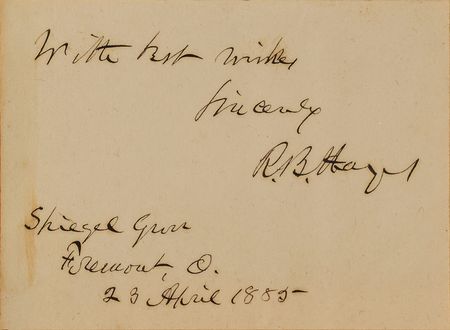 With best wishes
Sincerely
R.B. Hayes
Spiegel Grove
Fremont, O.
23 April 1885